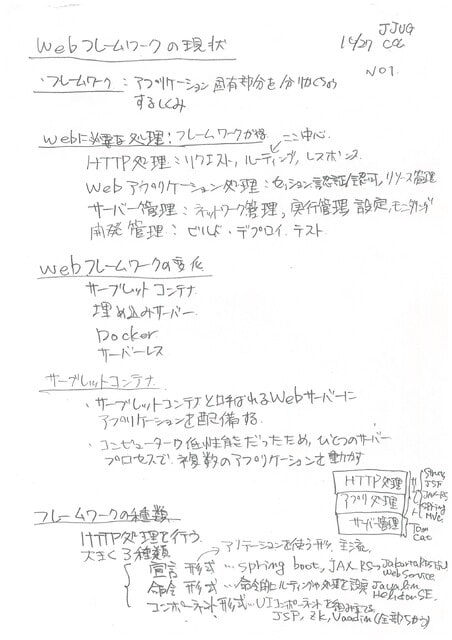 JJUG
Webフレームワークの現状
10/27 CCC
No1.
・フレームワーク:アプリケーション固有部分を
するしくみ
Webに必要な処理:フレームワークが
ここ中心
HTTP処理:リクエスト,ルーティング,レスポンス
Webアプリケーション処理:セッション,認証/認可,リソース管理
サーバー管理:ネットワーク管理,実行管理,設定,モニタリング
開発管理:ビルド・デプロイ.テスト
Webフレームワークの変化
サーブレットコンテナ
埋め込みサーバー
Docker
サーバーレス
サーブレットコンテナ
・サーブレットコンテナと呼ばれるWebサーバーに
アプリケーションを配備する
・コンピューターが低性能だったため,ひとつのサーバー
プロセスで複数のアプリケーションを動かす
HTTP処理
アプリ処理
サーバー管理
Struts
JSF
JAX-RS
Spring
MVC
Tom
Cat
フレームワークの種類
HTTP処理を行う.
大きく3種類
アノテーションを使う形 主流
宣言 形式…Spring boot, JAX-RS→Jakarta RESTful
Web Service
命令 形式…命令的にルーティングや処理を設定 Javalin
Helidon SE.
コンポーネント形式…UIコンポーネントを組み立てる
JSP, ZK, Vaadin(全部ちがう)